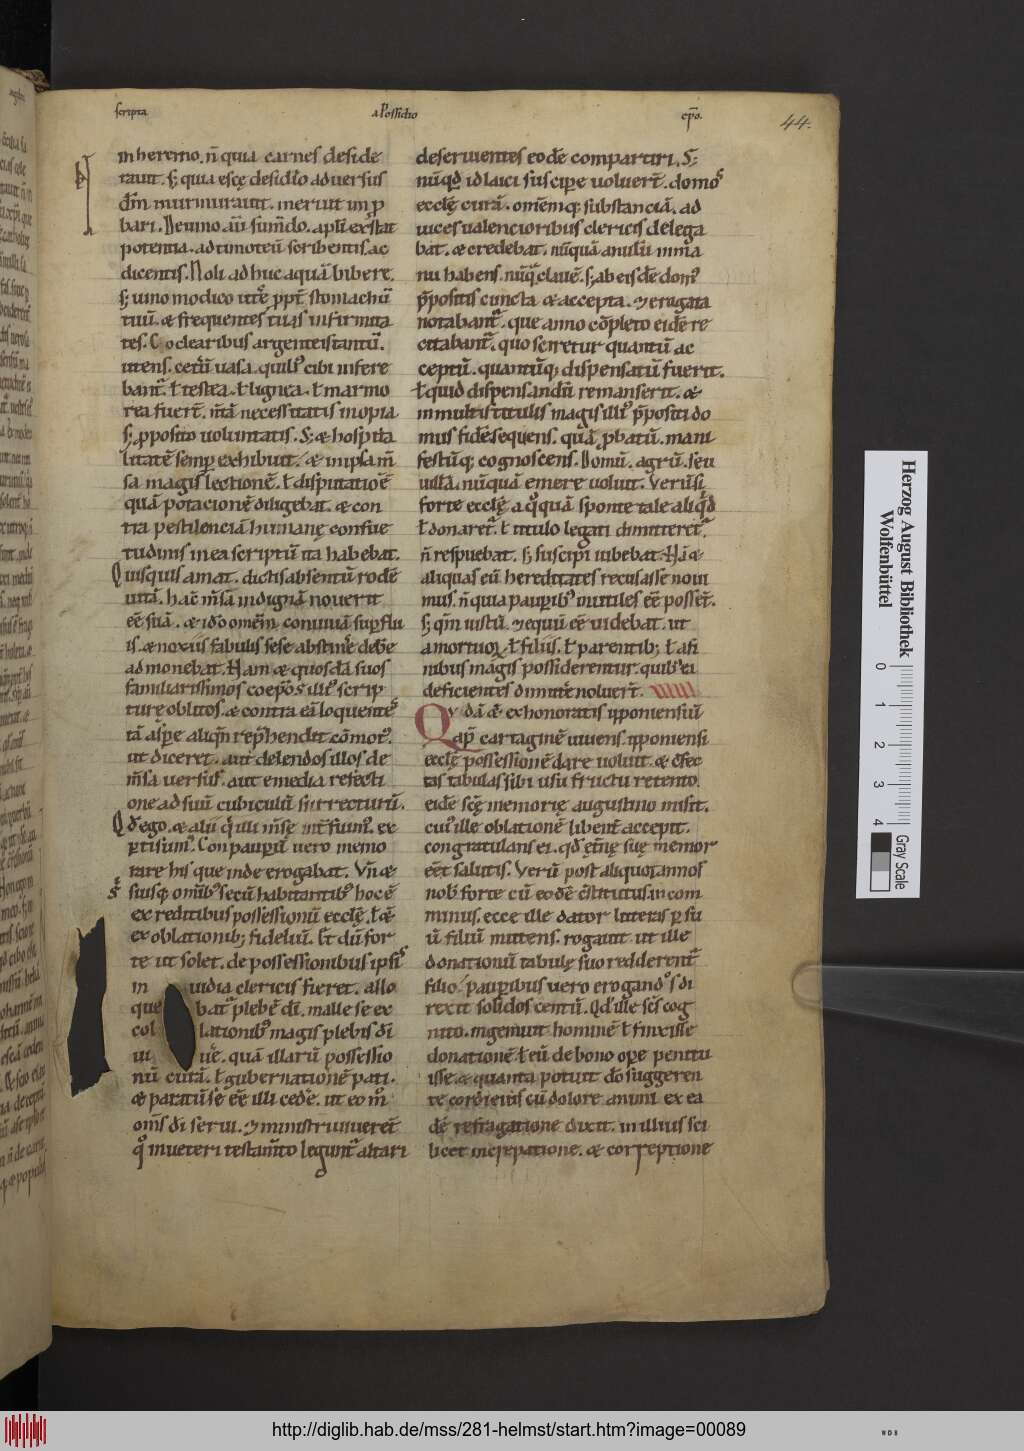 scripta a Possidio ep̄o. 44.
in heremo. n̄ quia carnes deside
rauit. s; quia escę desid'io aduersus
dn̄m murmurauit. meruit im p
bari. De uino aū sum̄do. apl'i exstat
potentia. ad timoteū scribentis. ac
dicentis. Noli ad huc aquā bibere.
s; uino modico utēr ppt̄ stomachū
tuū. & frequentes tuas infirmita
tes. Coclearibus argenteistantū.
utens. ceterū uasa. quib; cibi infere
bant᷑. ł testea. ł lignea. ł marmo
rea fuer̄t. n̄ tā necessitatis inopia
s; pposito uoluntatis. S; & hospita
litatē semp exhibuit. & in ipsa m̄
sa magis lectionē. ł disputationē
quā potacionē diligebat. & con
tra pestilenciā humanę consue
tudinis in ea scriptū ita habebat.
Quisquis amat. dictis absentū rodē
uitā. hac m̄sā indignā nouerit
eē suā. & id'o om̄em conuiuā supflu
is. & noxiis fabulis sese abstinēr debēe
admonebat. Nam & quosdā suos
familiarissimos coep̄os illi᾽ scrip
turę oblitos. & contra eā loquentes
tā aspe aliqn̄ rep̄hendit cōmot᾽.
ut diceret. aut delendos illos de
m̄sa uersus. aut e media refecti
one ad suū cubiculū surrecturū.
Qd̄ ego. & alii q̄ illi m̄sę int̄fuim᾽. ex
ptisum᾽. Conpauperū uero memo
rare his que inde erogabat. Vn̄ &
suisq; omīb᾽ secū habitantib᾽ hoc ē
ex reditibus possessionū ecclę. ł &
ex oblationib; fideliū. Et dū for
te ut solet. de possessionibus ipsis
in uidia clericis fieret. allo
que bat᷑ plebē dī. malle se ex
col lationib᾽ magis plebis dī
ui uē. quā illarū possessio
nū curā. ł gubernationē pati.
& paratū sē eē illi cedē. ut eo m̊
om̄s dī serui. & ministri uiuerēt
q̊ in ueteri testam̄to legunt᷑ altari
deseruientes eodē compartiri. S;
nūqd̄ id laici suscipe uoluer̄t. domos
ecclę curā. omēmq; substanciā. ad
uices ualencioribus clericis delega
bat. & credebat. nūquā anulū in ma
nu habens. nūq̄ clauē. s; ab eisdē dom᾽
p̄positis cuncta & accepta. & erogata
notabant᷑. que anno cōpleto eidē re
citabant᷑. quo sciretur quantū ac
ceptū. quantūq; dispensatū fuerit.
ł quid dispensandū remanserit. &
in multis titulis magis illi᾽ p̄positi do
mus fidē sequens. quā pbatū. mani
festūq; cognoscens. Domū. agrū. seu
uillā. nūquā emere uoluit. Verū si
forte ecclę a q̊quā sponte tale aliq̄d
ł donaret᷑. ł titulo legati dimitteret᷑.
n̄ respuebat. s; suscipi iubebat. Nā &
aliquas eū hereditates recusasse noui
mus. n̄ quia pauprib᾽ inutiles eē posset.
s; qm̄ iustū. & equū eē uidebat. ut
a mortuoꝝ ł filiis. ł parentib; ł afi
nibus magis possiderentur. quib᾽ ei
deficientes dimittēr noluer̄t. XXIIII
Qvdā & ex honoratis ipponiensiū
ap̄ cartaginē uiuens. ipponiensi
ecclę possessionē dare uoluit. & cōfec
tas tabulas sibi usu fructu retento.
eidē scę memorię augustino misit.
cui᾽ ille oblationē libent̄ accepit.
congratulans ei. qd̄ ęt̄nę suę memor
eēt salutis. Verū post aliquot annos
nob᾽ forte cū eodē cōstitutis in com
minus. ecce ille dator litteras p su
ū filiū mittens. rogauit ut ille
donationū tabulę suo redderent᷑
filio. paupibus uero erogandos di
rexit solidos centū. Qd̄ ille scs̄ cog
nito. ingemuit hominē ł finxisse
donationē. ł eū de bono ope penitu
isse. & quanta potuit dō suggeren
te cordi eius cū dolore animi ex ea
dē refragatione dixit. in illius sci
licet increpatione. & correptione
Herzog August Bibliothek
Wolfenbüttel
0 1 2 3 4
Gray Scale
http://diglib.hab.de/mss/281-helmst/start.htm?image=00089